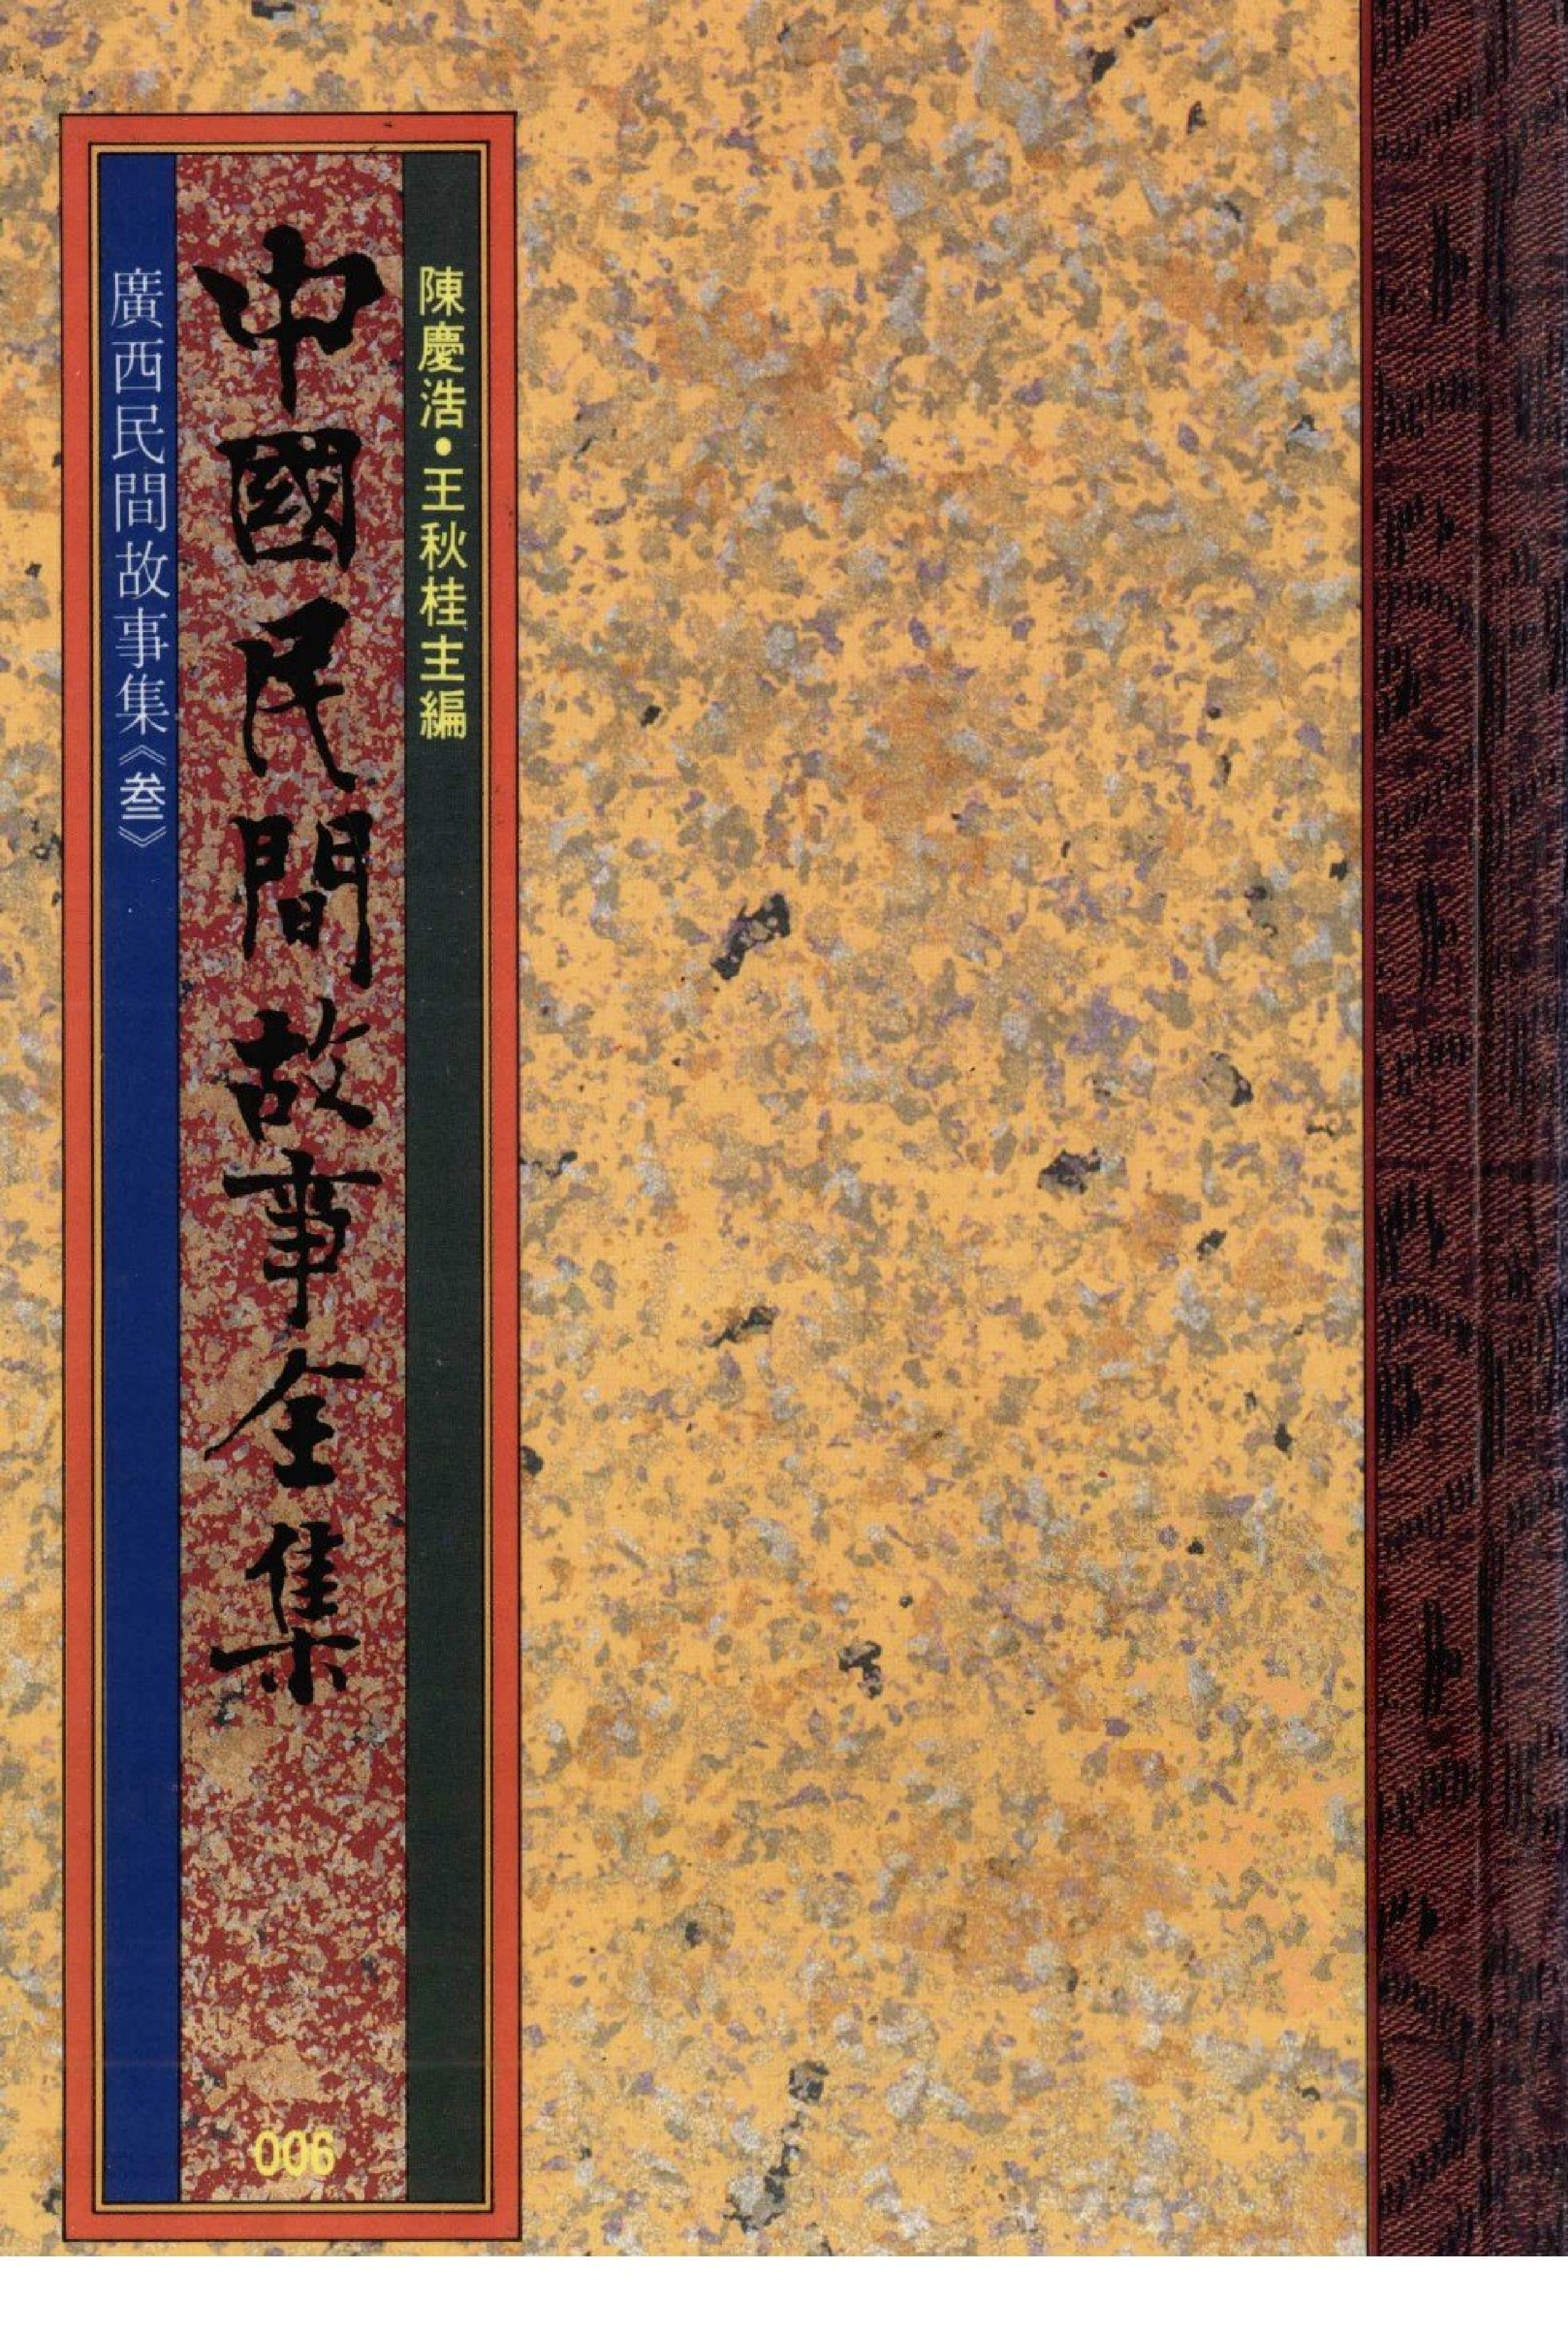 陳慶浩•王秋桂主編
中國民間故事全集
006
廣西民間故事集《叁》